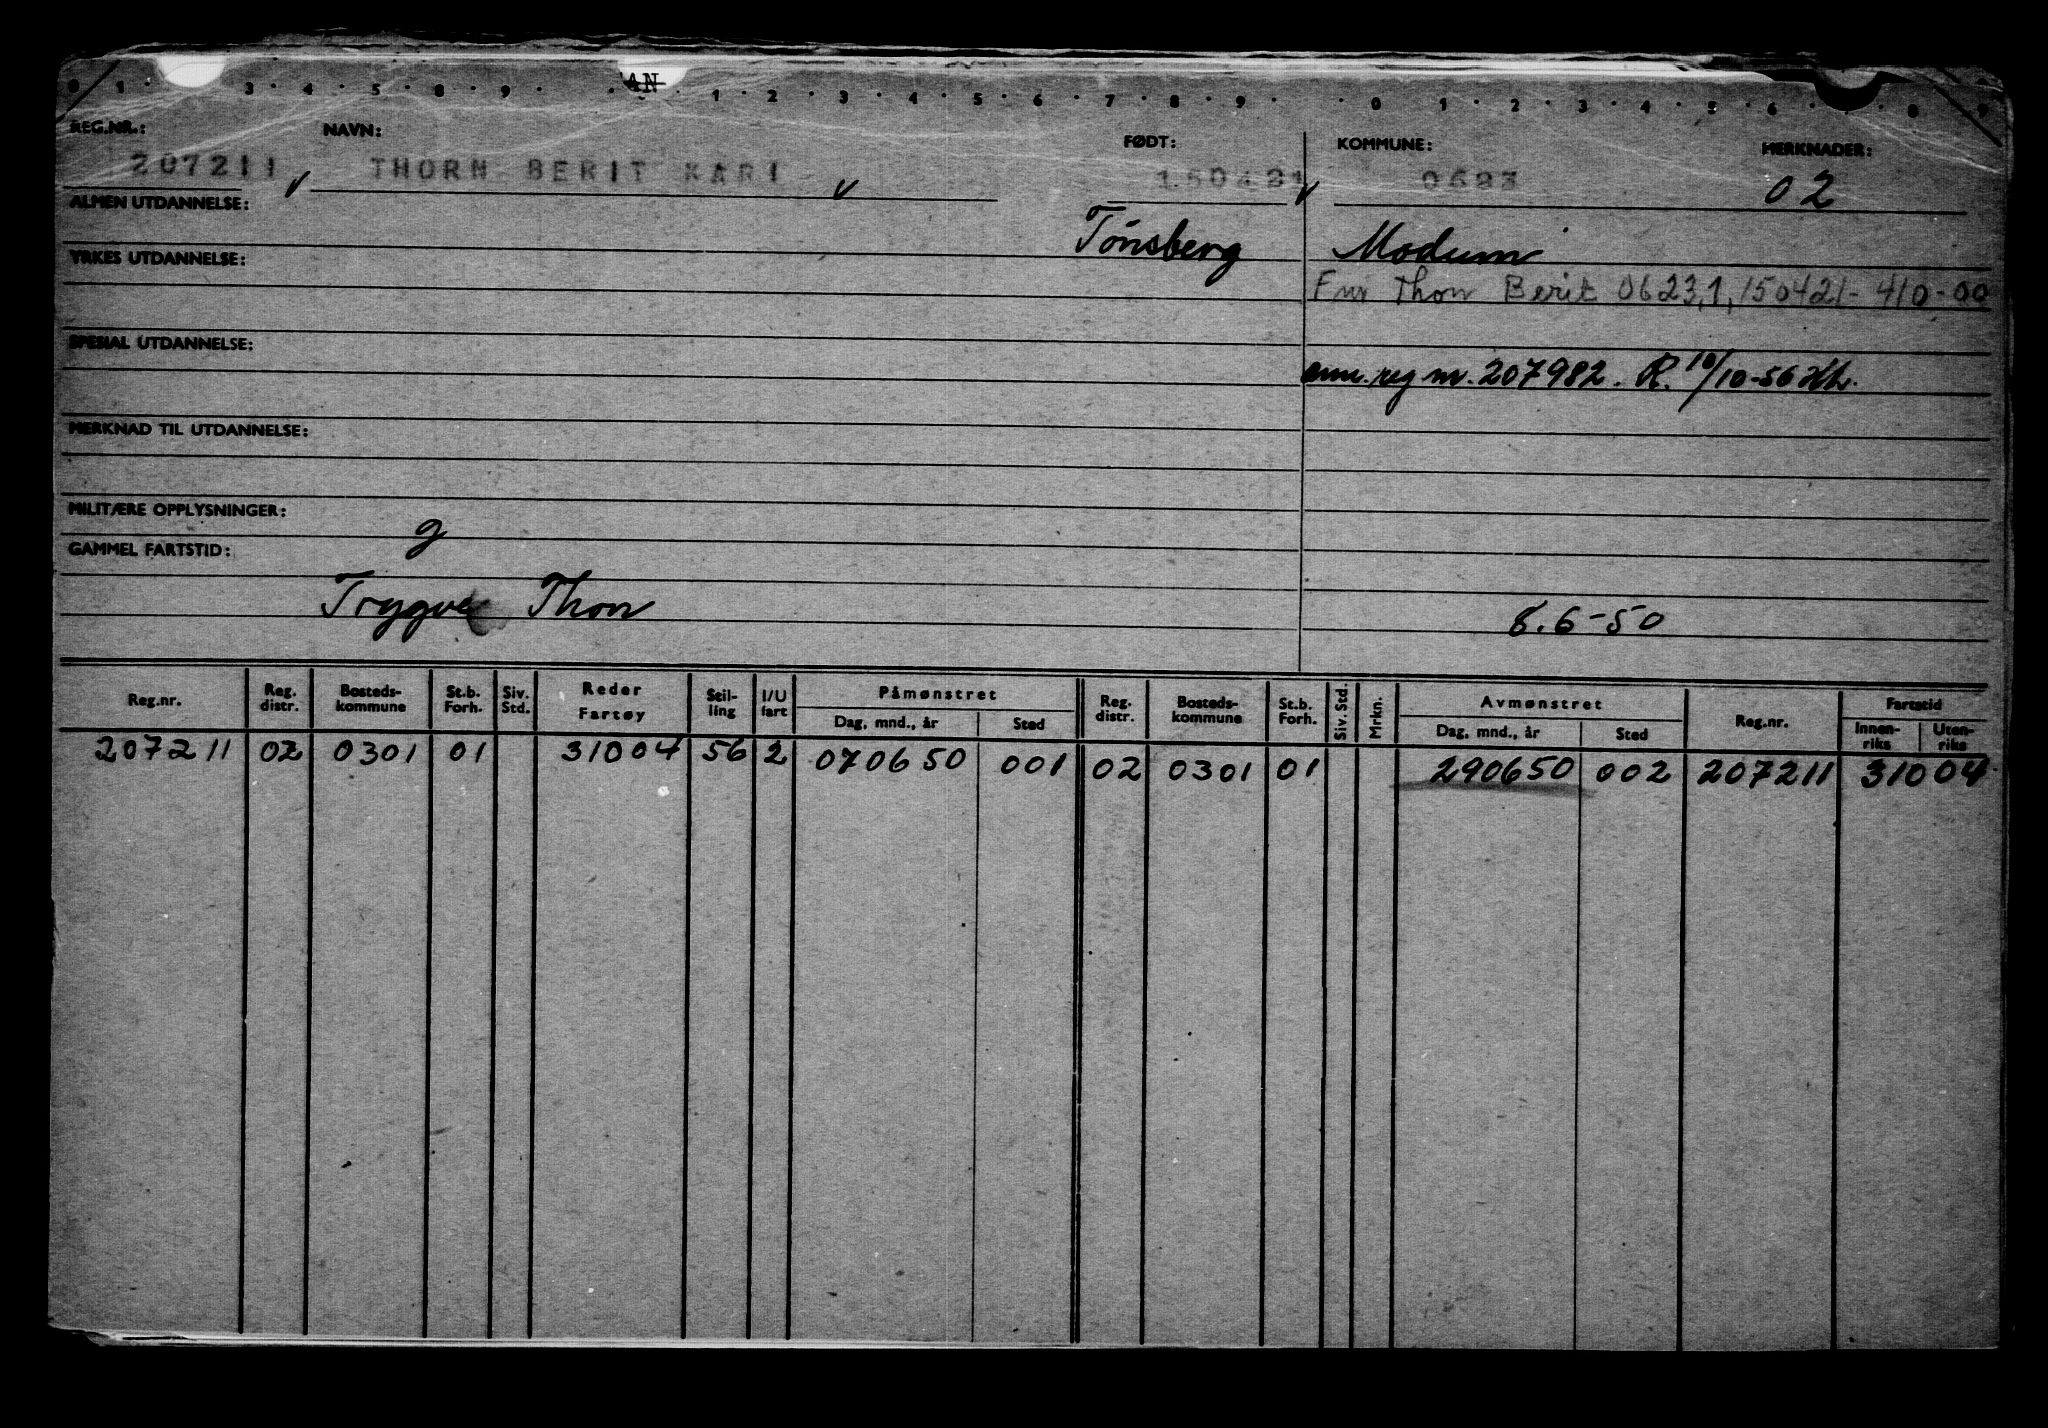 0 1 · 3 · 4 · 5 · 8 · 9 · AN · 1 · 2 · 3 · 4 · 5 · 6 · 7 · 8 · 9 · · 0 · 1 · 2 · 3 · 4 · 5 · 6 · · 8 · 9
REG.NR.: NAVN: FØDT: KOMMUNE: MERKNADER:
207211 THORN BERIT KARI 150421 0623 02
ALMEN UTDANNELSE:
Tönsberg Modum
YRKES UTDANNELSE:
Fnr Thon Berit 0623,1,150421-410-00
SPESIAL UTDANNELSE:
ann. reg nr. 207982. R. 10/10-56
MERKNAD TIL UTDANNELSE:
MILITÆRE OPPLYSNINGER:
g
GAMMEL FARTSTID:
Trygve Thon 8.6-50
Reg.nr. Reg. distr. Bosteds-kommune St.b. Forh. Siv. Std. Reder Fartøy Stil-ling I/U fart Påmønstret Dag, mnd., år Sted Reg. distr. Bosteds-kommune St.b. Forh. Siv. Std. Mrkn. Avmønstret Dag, mnd., år Sted Reg.nr. Fartstid Innen-riks Uten-riks
207211 02 0301 01 31004 56 2 070650 001 02 0301 01 290650 002 207211 31004